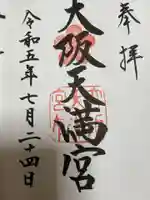 奉拝
大阪天満宮
令和五年七月二十四日